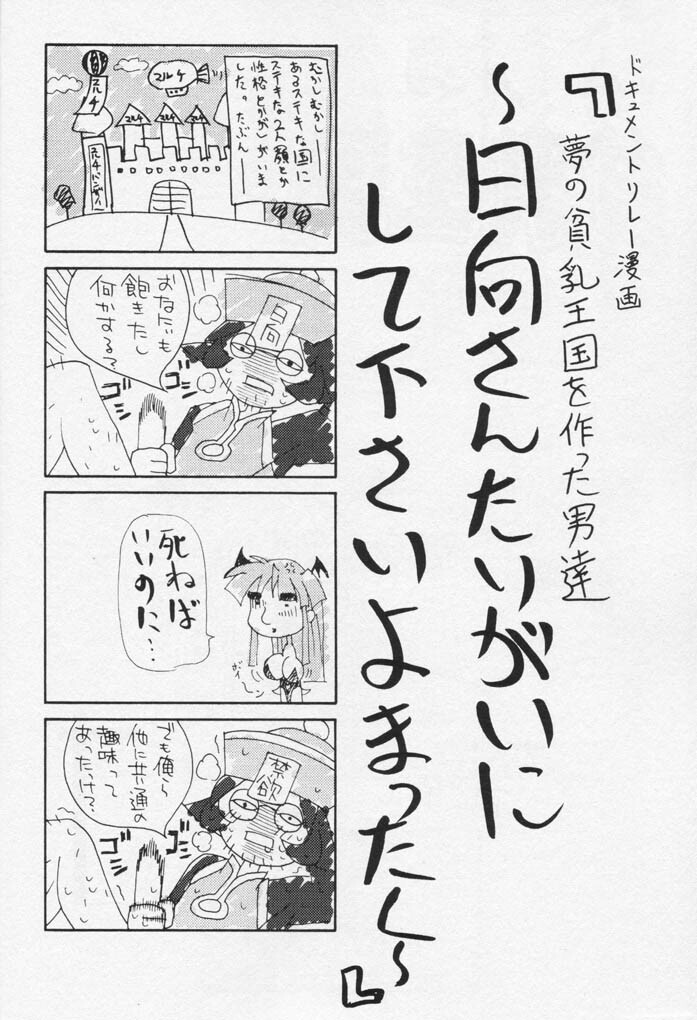 ドキュメントリレー漫画
『夢の貧乳王国を作った男達
～日向さんたいがいに
して下さいよまったく～』
むかしむかし
あるステキな国に
ステキな2人顔とか
性格とかが)がいま
した。たぶん
マルチ
マルチ
マルチ
マルチ
マルチバンザーイ
日向
おなにも
飽きたし
何かする？
ゴシ
ゴシ
死ねば
いいのに…
がーん
でも俺ら
他に共通の
趣味って
あったっけ？
禁欲
ゴシ
ゴシ